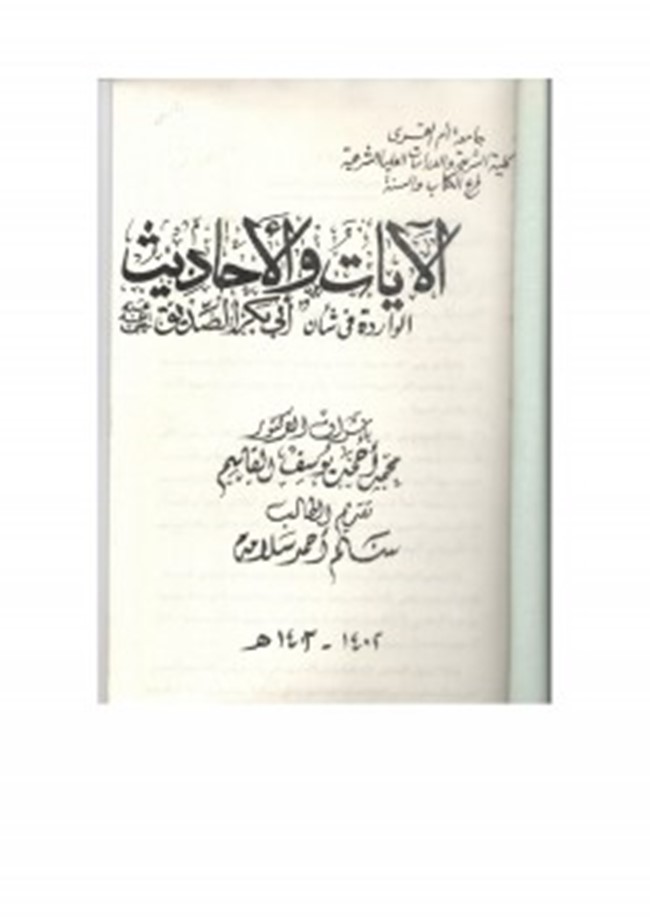 جامعة أم القرى
كلية الشريعة والدراسات العليا الشرعية
فرع الكتاب والسنة
الآيات والأحاديث
الواردة في شأن أبي بكر الصديق رضي الله عنه
بإشراف الدكتور
محمد أحمد يوسف القاسم
تقديم الطالب
سالم أحمد سلامة
١٤٠٢ - ١٤٠٣ هـ